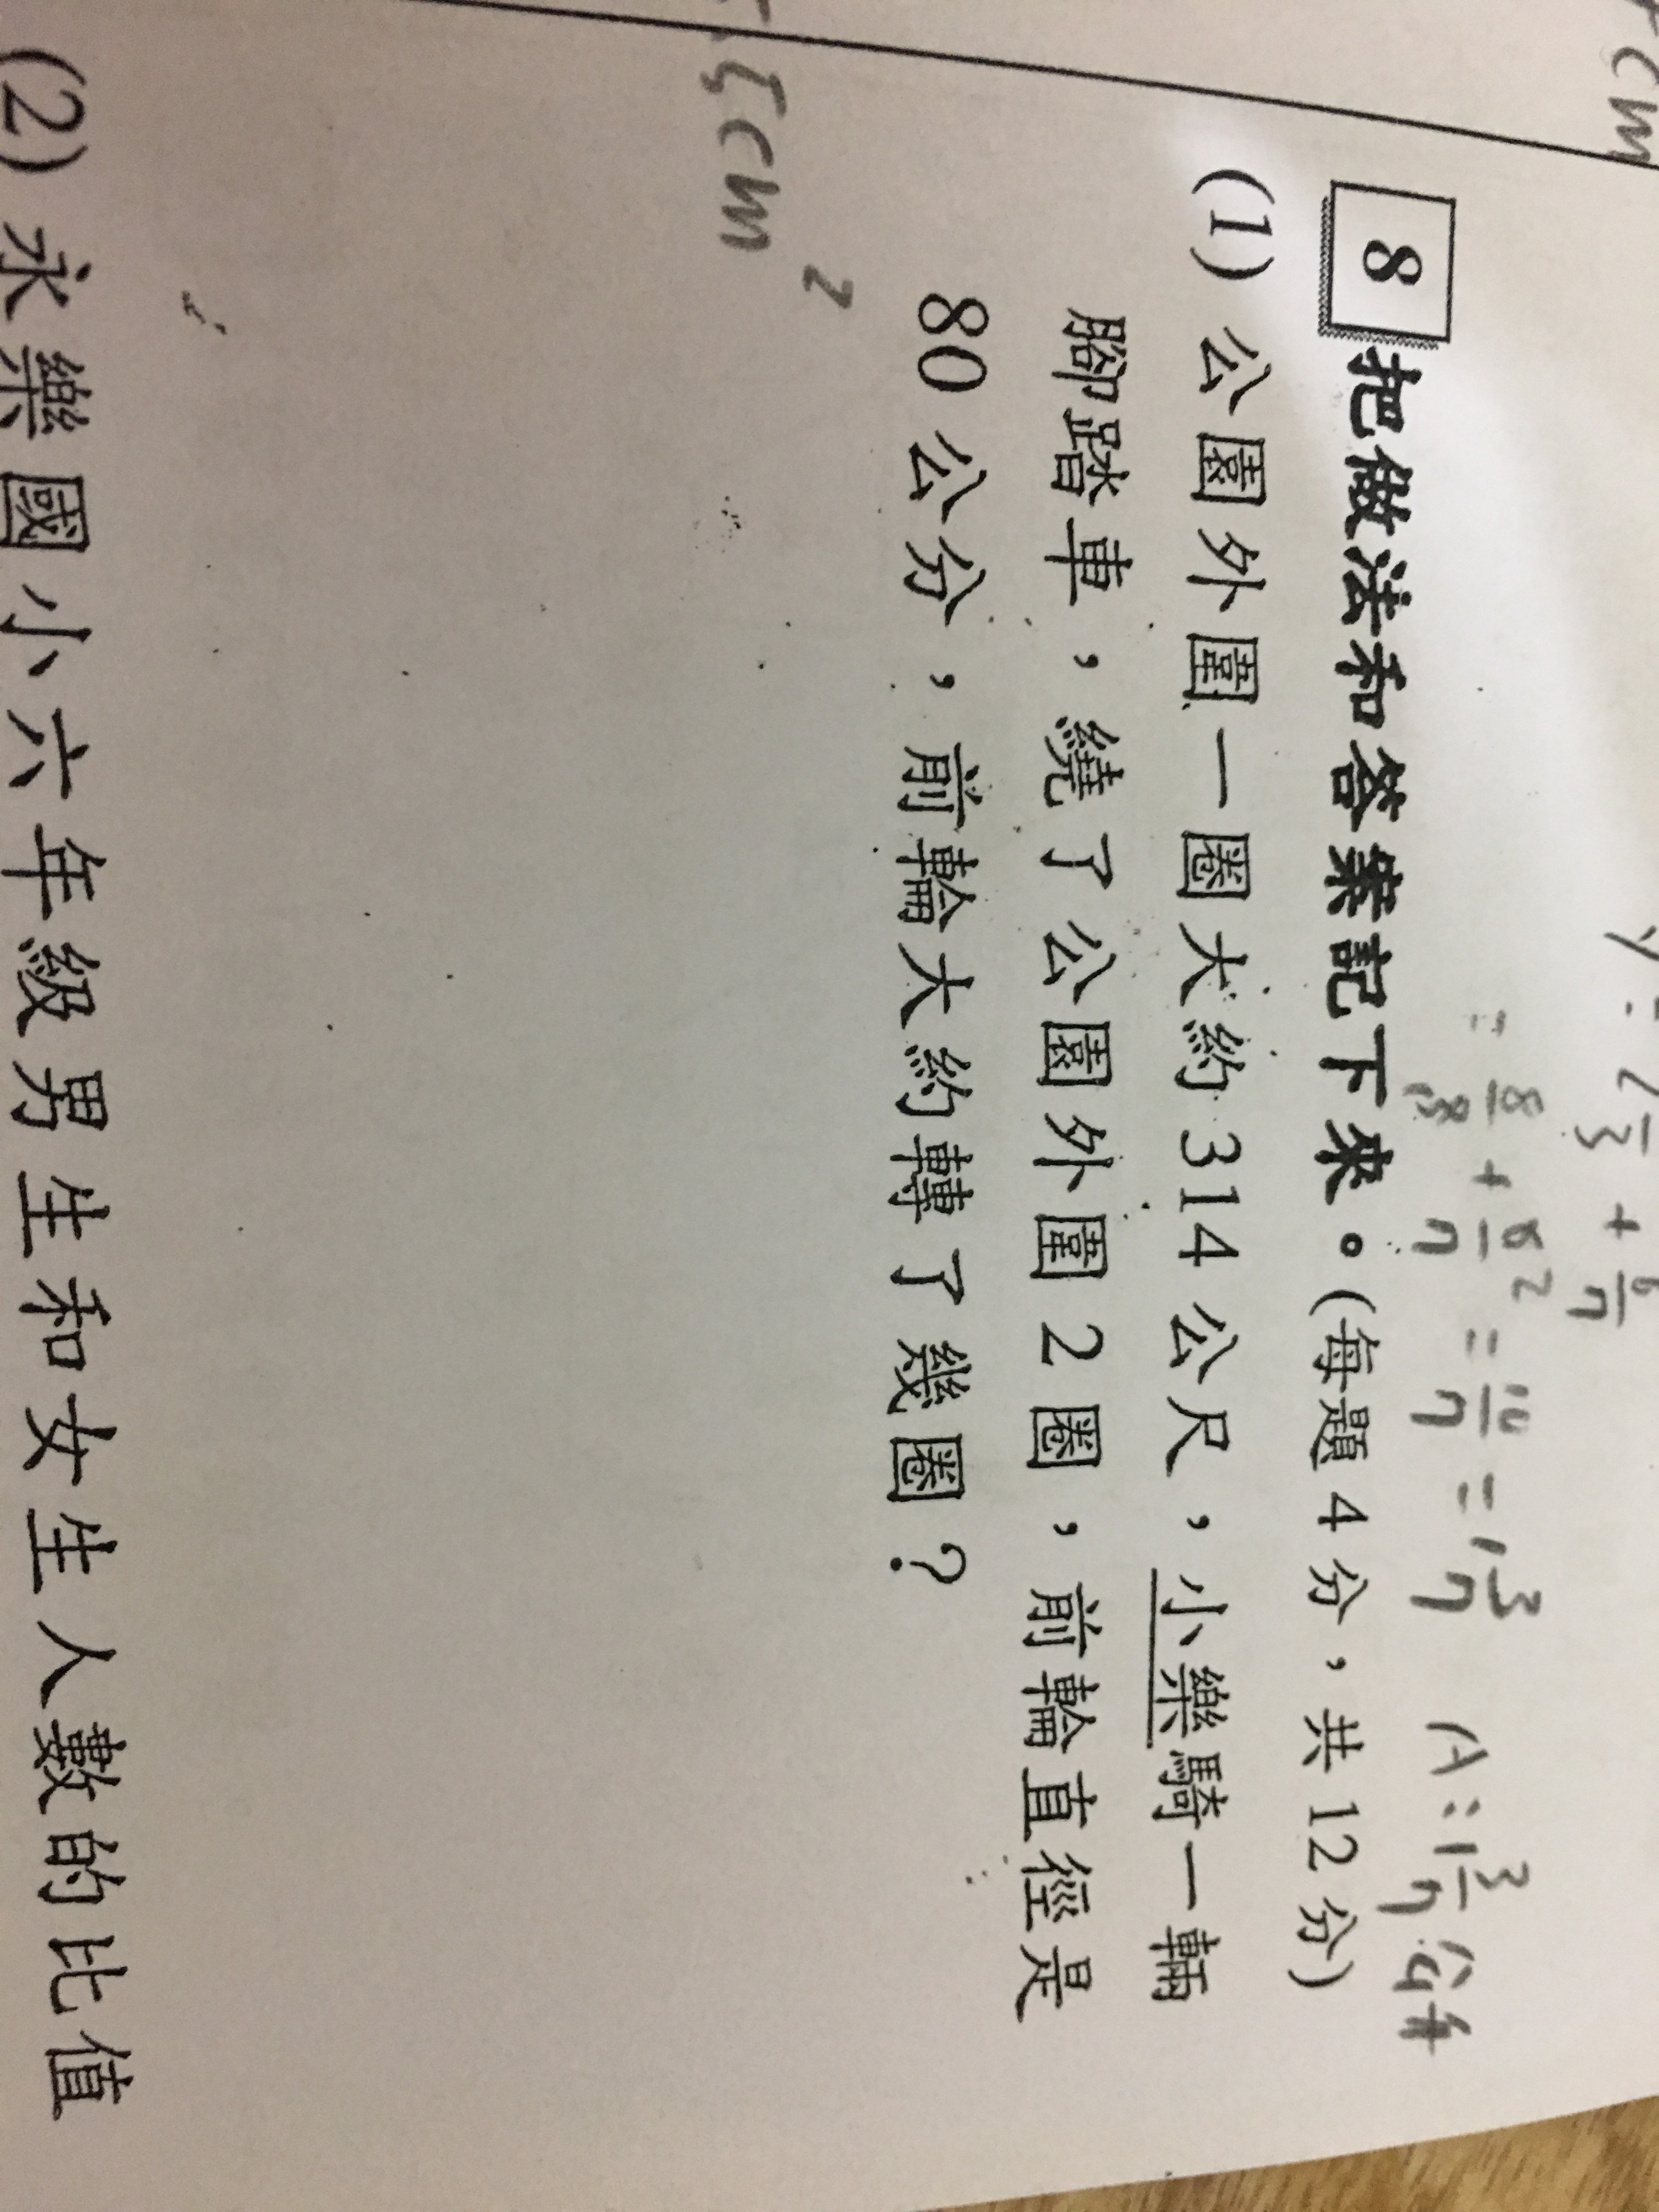 = 8/8 + 8/7 = 10/7 = 1 3/7 A:1 3/7 公斤
8 把做法和答案記下來。(每題 4 分，共 12 分)
(1) 公園外圍一圈大約 314 公尺，小樂騎一輛
腳踏車，繞了公園外圍 2 圈，前輪直徑是
80 公分，前輪大約轉了幾圈？
cm²
(2) 永樂國小六年級男生和女生人數的比值